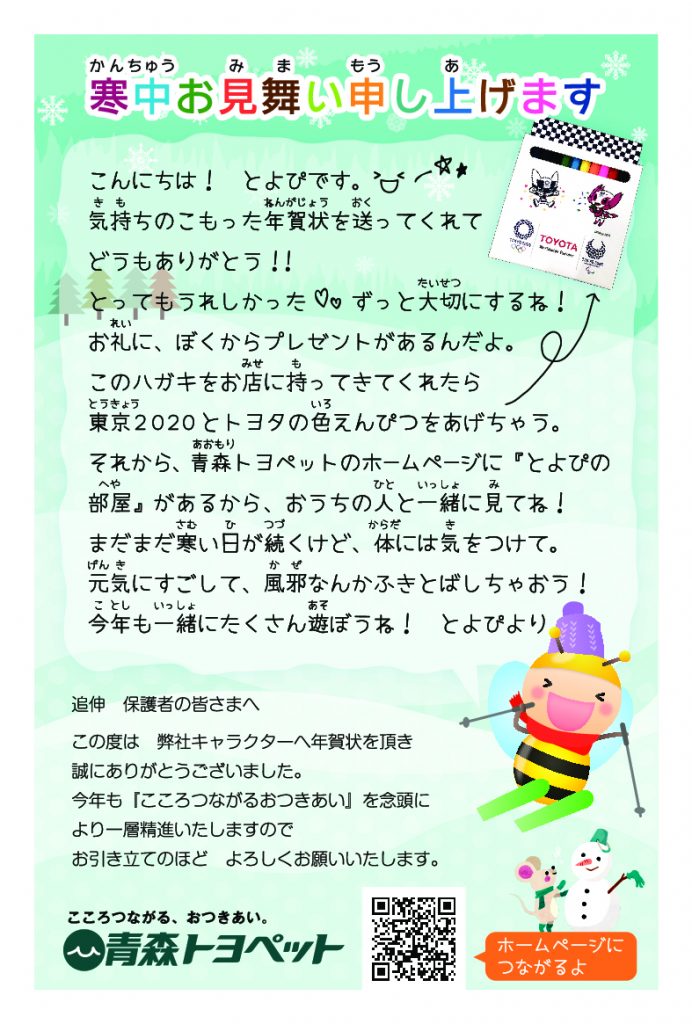 かんちゅう み ま もう あ
寒中お見舞い申し上げます
こんにちは！ とよぴです。
き も ねんがじょう おく
気持ちのこもった年賀状を送ってくれて
どうもありがとう！！
たいせつ
とってもうれしかった♡♡ ずっと大切にするね！
れい
お礼に、ぼくからプレゼントがあるんだよ。
みせ も
このハガキをお店に持ってきてくれたら
とうきょう いろ
東京2020とトヨタの色えんぴつをあげちゃう。
あおもり
それから、青森トヨペットのホームページに『とよぴの
へや ひと いっしょ み
部屋』があるから、おうちの人と一緒に見てね！
さむ ひ つづ からだ き
まだまだ寒い日が続くけど、体には気をつけて。
げんき かぜ
元気にすごして、風邪なんかふきとばしちゃおう！
ことし いっしょ あそ
今年も一緒にたくさん遊ぼうね！ とよぴより
TOYOTA
追伸 保護者の皆さまへ
この度は 弊社キャラクターへ年賀状を頂き
誠にありがとうございました。
今年も『こころつながるおつきあい』を念頭に
より一層精進いたしますので
お引き立てのほど よろしくお願いいたします。
こころつながる、おつきあい。
青森トヨペット
ホームページに
つながるよ